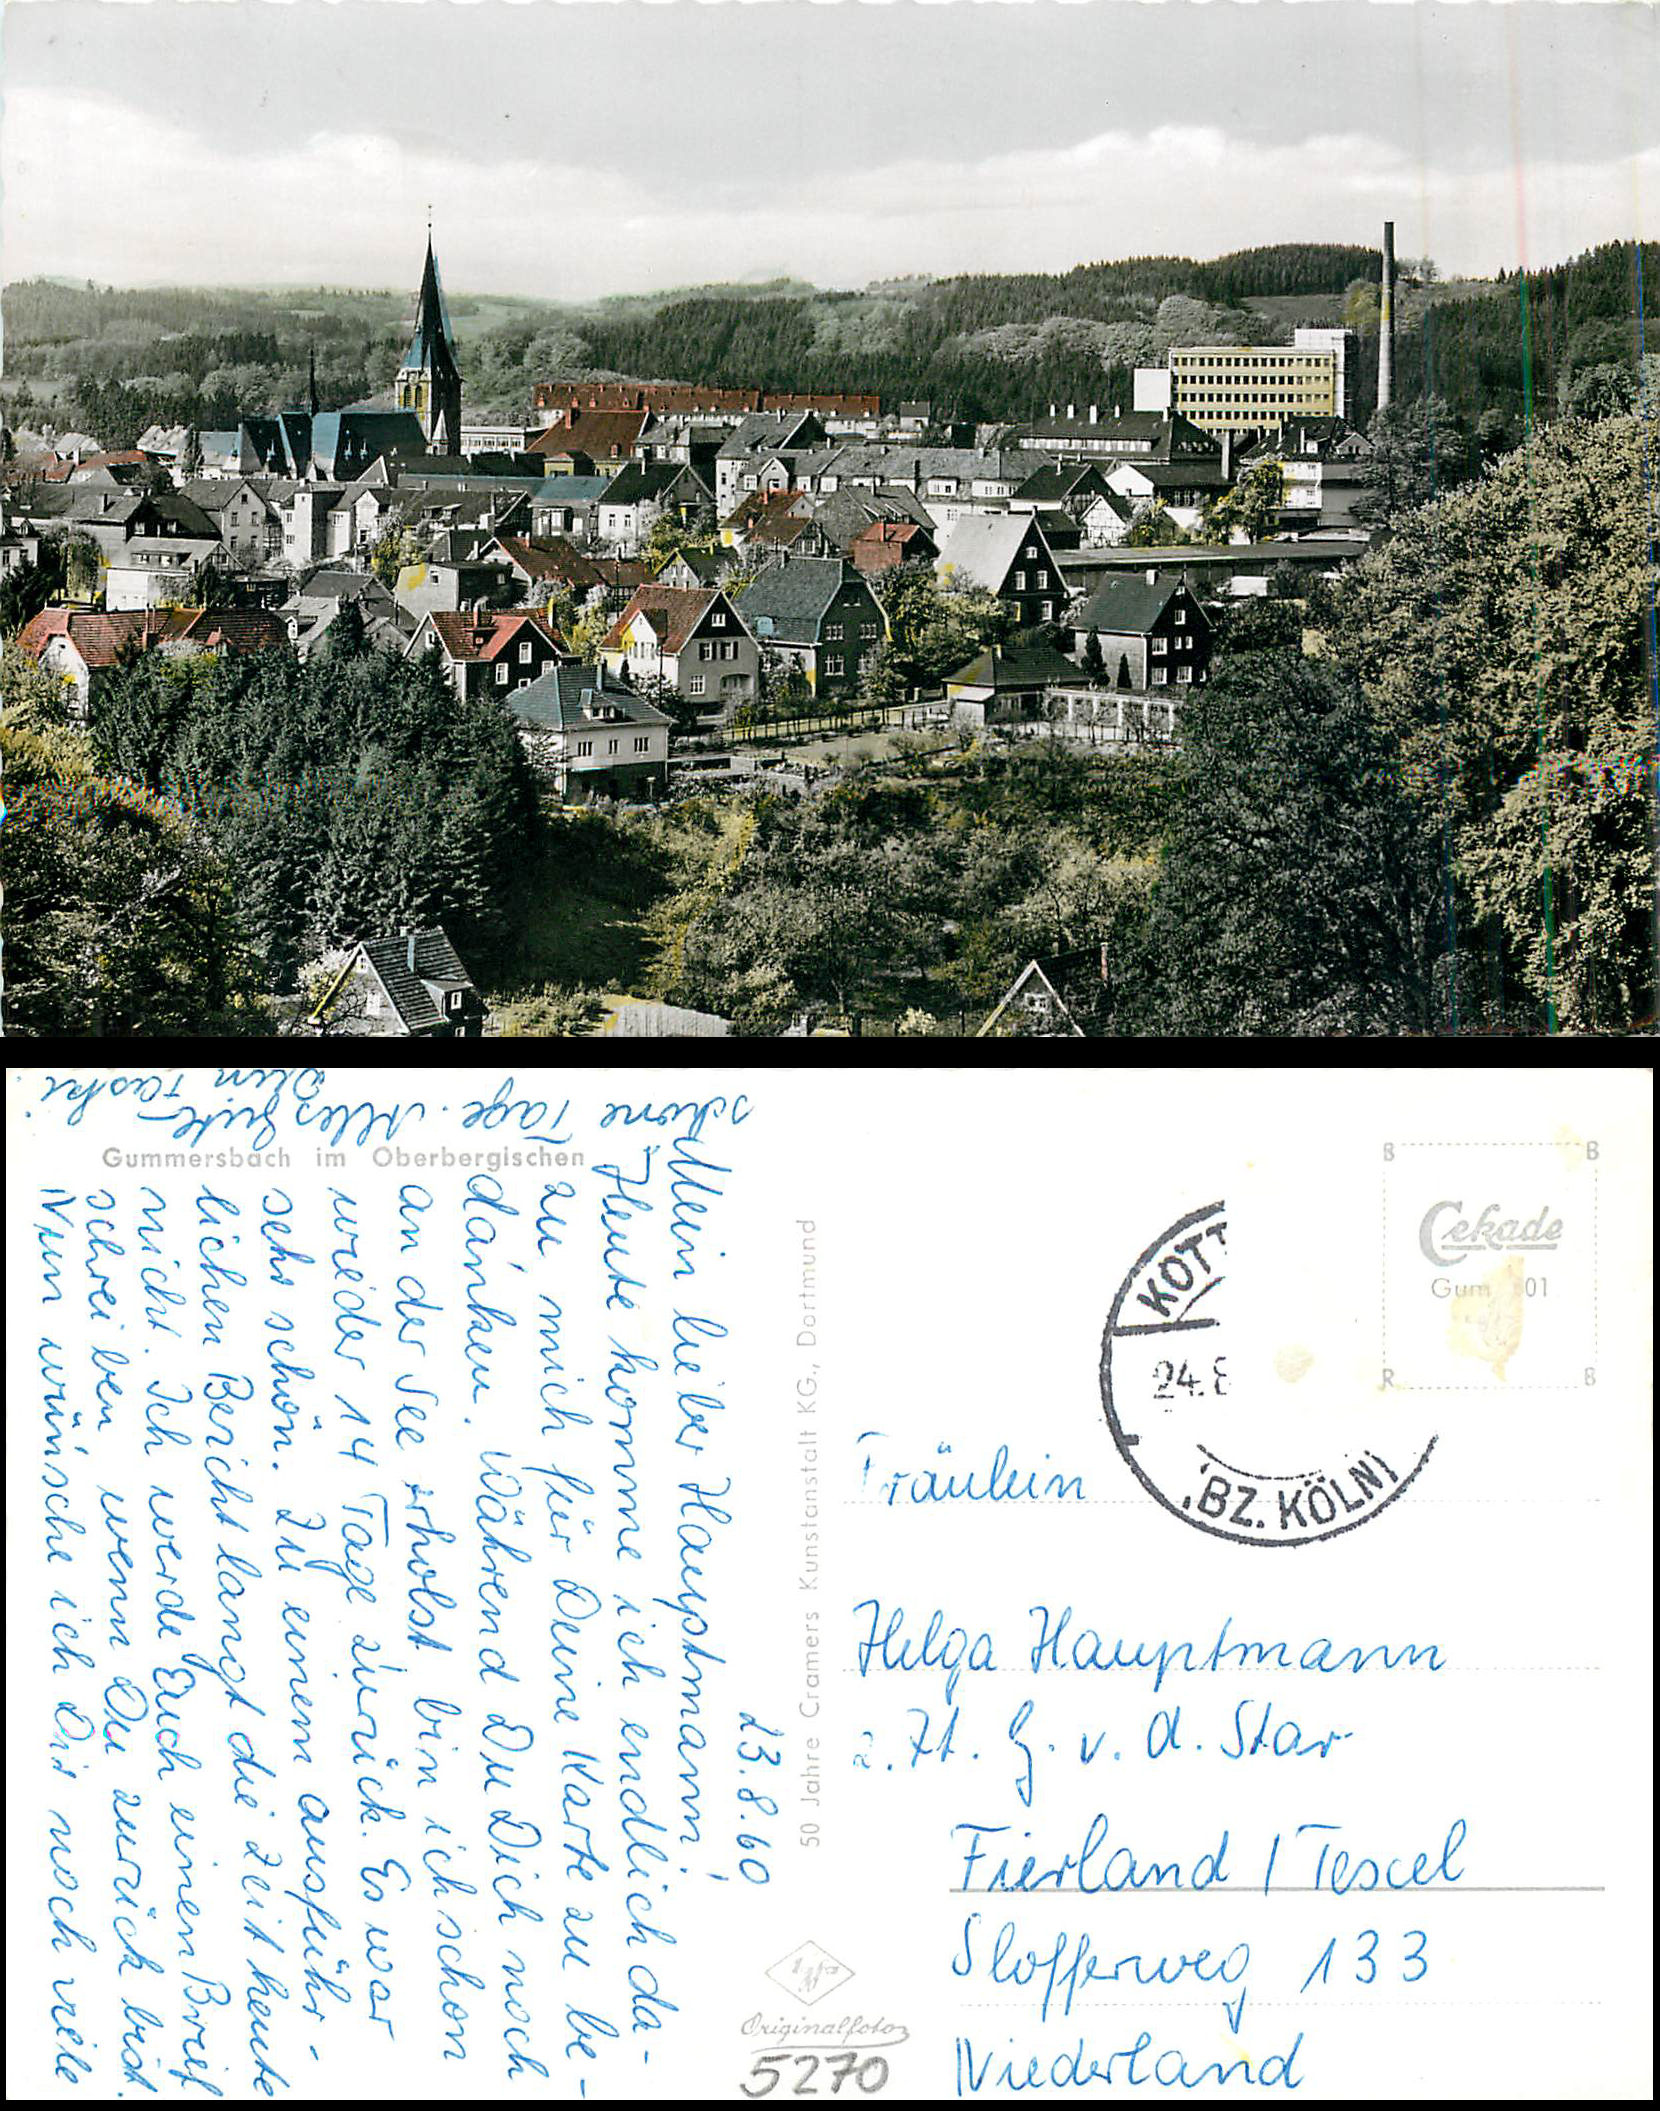 Gummersbach im Oberbergischen
23.8.60
Mein lieber Hauptmann!
Heute komme ich endlich da-
zu mich für Deine Karte zu be-
danken. Während Du Dich noch
an der See erholst bin ich schon
wieder 14 Tage zurück. Es war
sehr schön. Zu einem ausführ-
lichen Bericht langt die Zeit heute
nicht. Ich werde Euch einen Brief
schreiben wenn Du zurück bist.
Nun wünsche ich Dir noch viele
schöne Tage. Alles Gute
Dein
50 Jahre Cramers Kunstanstalt KG., Dortmund
Agfa
Originalfoto
5270
B B
Cekade
Gum 601
R B
KOTT
24.8
(BZ. KÖLN)
Fräulein
Helga Hauptmann
z. Zt. G. v. d. Star
Fierland / Texel
Slofferweg 133
Niederland